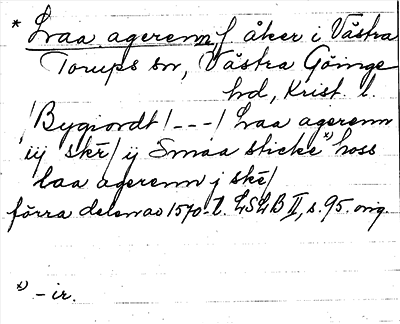 * Laa agerenn f åker i Västra
Torups sn, Västra Göinge
hd, Krist. l.
/Bygiordt/ - - -/ Laa agerenn
iij skr̄/ ij Smaa sticke x) hoss
laa agerenn j skē/
förra delen av 1570-t. LSLB II, s. 95. orig.
x) - ir.